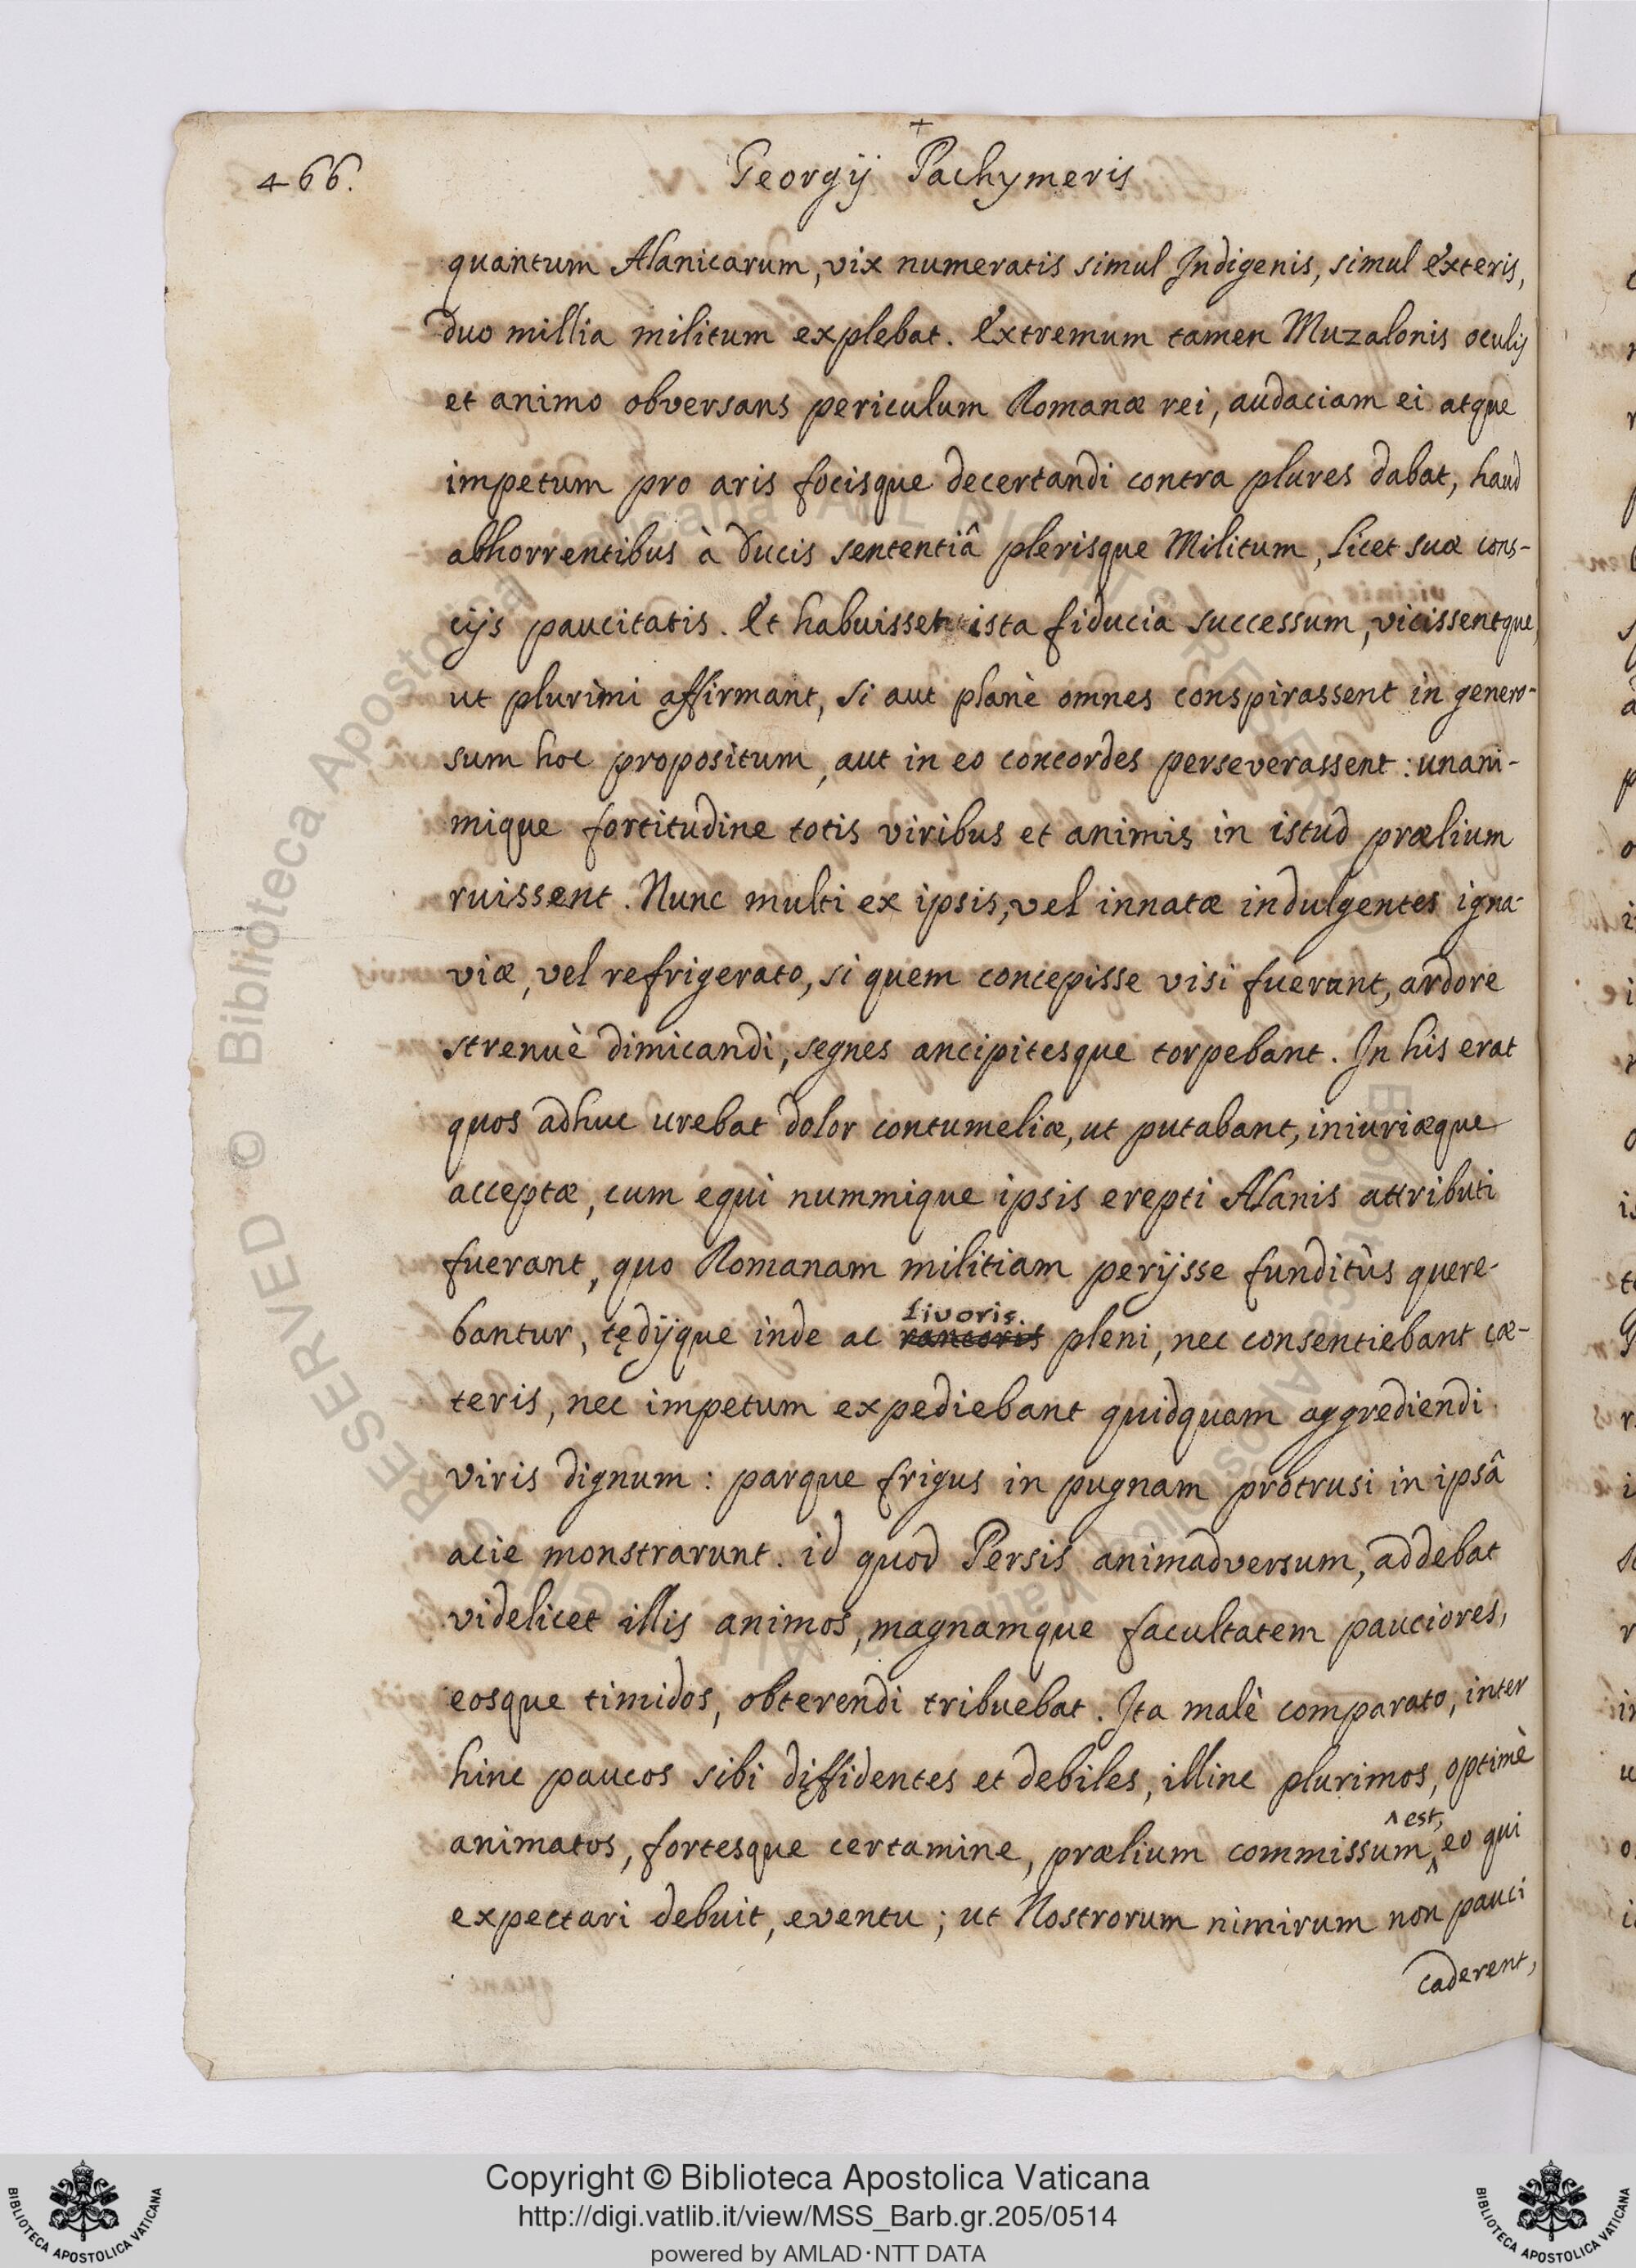 +
466. Georgij Pachymeris
quantum Alanicarum, vix numeratis simul Indigenis, simul Exteris,
duo millia militum explebat. Extremum tamen Muzalonis oculis
et animo obversans periculum Romanæ rei, audaciam ei atque
impetum pro aris focisque decertandi contra plures dabat, haud
abhorrentibus à Ducis sententiâ plerisque Militum, licet suæ cons-
cijs paucitatis. Et habuisset ista fiducia successum, vicissentque,
ut plurimi affirmant, si aut planè omnes conspirassent in genero-
sum hoc propositum, aut in eo concordes perseverassent: unani-
mique fortitudine totis viribus et animis in istud prælium
ruissent. Nunc multi ex ipsis, vel innatæ indulgentes igna-
viæ, vel refrigerato, si quem concepisse visi fuerant, ardore
strenuè dimicandi, segnes ancipitesque torpebant. In his erat
quos adhuc urebat dolor contumeliæ, ut putabant, iniuriæque
acceptæ, cum equi nummique ipsis erepti Alanis attributi
fuerant, quo Romanam militiam perijsse funditùs quere-
livoris.
bantur, tędijque inde ac rancoris pleni, nec consentiebant cæ-
teris, nec impetum expediebant quidquam aggrediendi
viris dignum: parque frigus in pugnam protrusi in ipsâ
acie monstrarunt. id quod Persis animadversum, addebat
videlicet illis animos, magnamque facultatem pauciores,
eosque timidos, obterendi tribuebat. Ita malè comparato, inter
hinc paucos sibi diffidentes et debiles, illinc plurimos, optimè
^ est,
animatos, fortesque certamine, prælium commissum ^ eo qui
expectari debuit, eventu; ut Nostrorum nimirum non pauci
caderent,
Copyright © Biblioteca Apostolica Vaticana
http://digi.vatlib.it/view/MSS_Barb.gr.205/0514
powered by AMLAD·NTT DATA
BIBLIOTECA APOSTOLICA VATICANA
BIBLIOTECA APOSTOLICA VATICANA